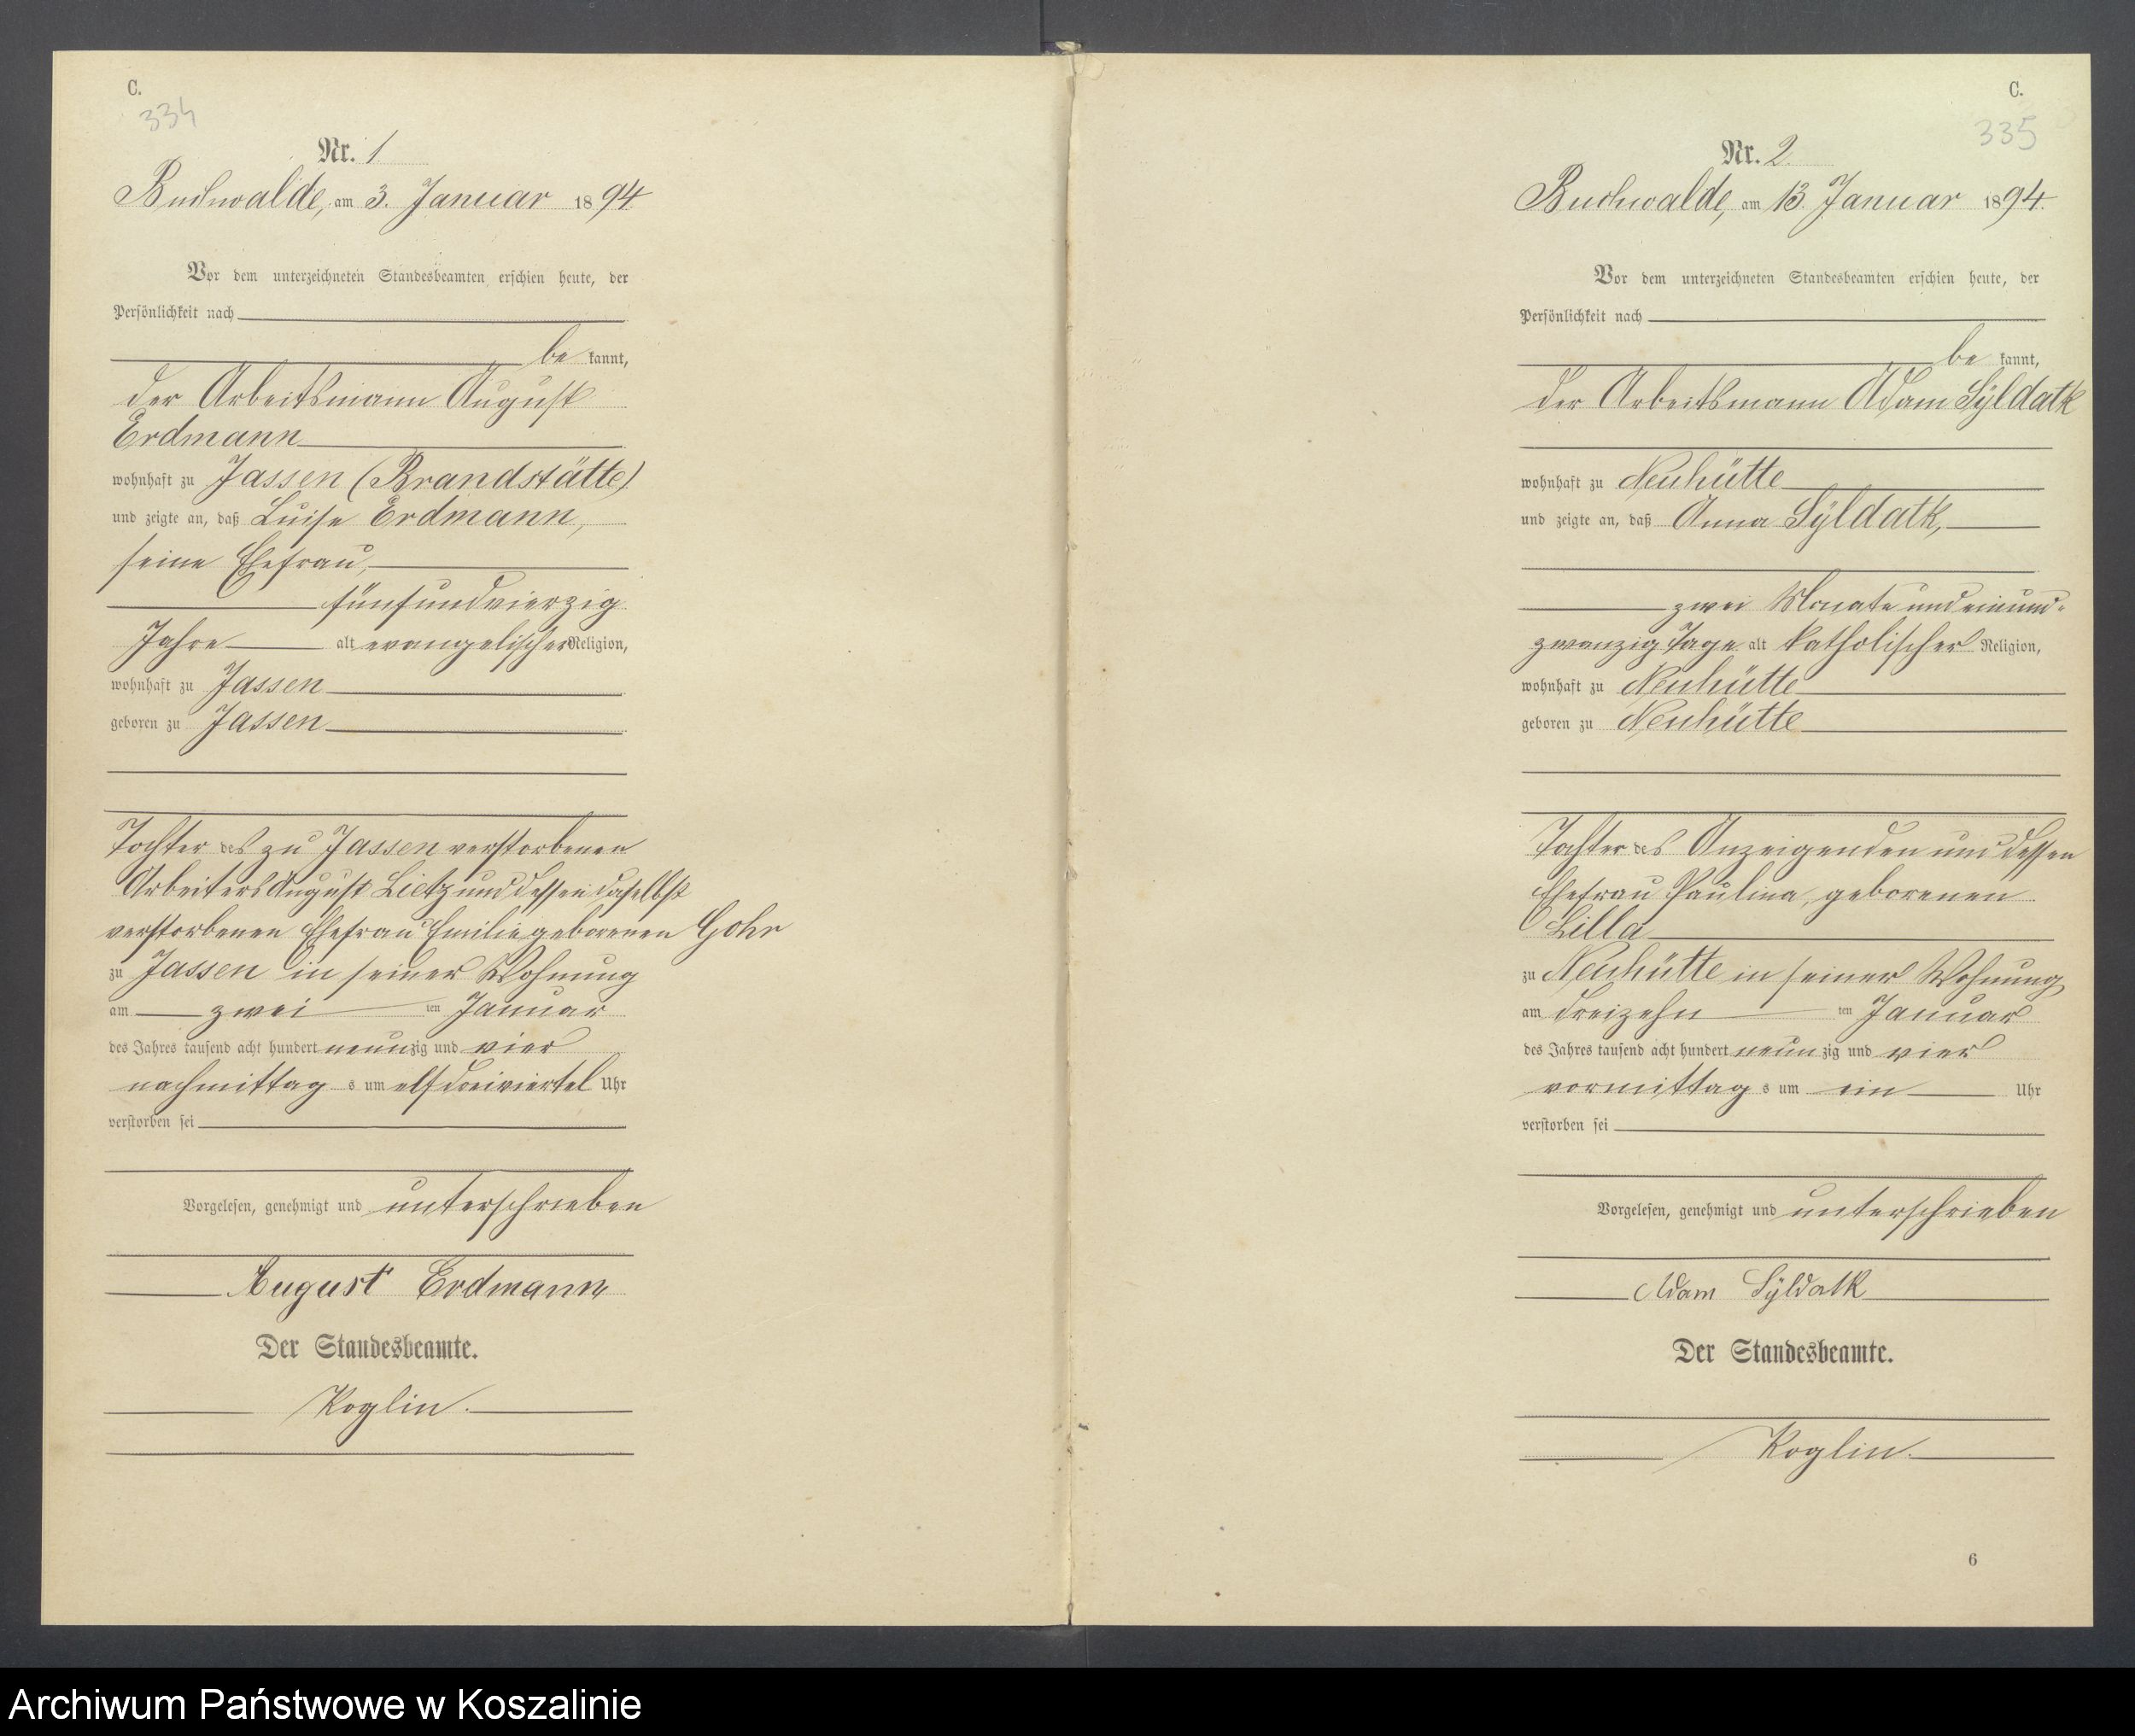 C.
334
Nr. 1
Buchwalde, am 3. Januar 1894.
Vor dem unterzeichneten Standesbeamten erschien heute, der
Persönlichkeit nach
be kannt,
der Arbeitsmann August
Erdmann
wohnhaft zu Jassen (Brandstätte)
und zeigte an, daß Luise Erdmann,
seine Ehefrau,
fünfundvierzig
Jahre alt evangelischer Religion,
wohnhaft zu Jassen
geboren zu Jassen
Tochter des zu Jassen verstorbenen
Arbeiters August Lietz und dessen daselbst
verstorbenen Ehefrau Emilie geborenen Gohr
zu Jassen in seiner Wohnung
am zwei ten Januar
des Jahres tausend acht hundert neunzig und vier
nachmittag s um elf dreiviertel Uhr
verstorben sei
Vorgelesen, genehmigt und unterschrieben
August Erdmann
Der Standesbeamte.
Koglin.
C.
335
Nr. 2
Buchwalde, am 13. Januar 1894.
Vor dem unterzeichneten Standesbeamten erschien heute, der
Persönlichkeit nach
be kannt,
der Arbeitsmann Adam Syldatk
wohnhaft zu Neuhütte
und zeigte an, daß Anna Syldatk,
zwei Monate und einund-
zwanzig Tage alt katholischer Religion,
wohnhaft zu Neuhütte
geboren zu Neuhütte
Tochter des Anzeigenden und dessen
Ehefrau Paulina, geborenen
Lilla
zu Neuhütte in seiner Wohnung
am dreizehn ten Januar
des Jahres tausend acht hundert neunzig und vier
vormittag s um ein Uhr
verstorben sei
Vorgelesen, genehmigt und unterschrieben
Adam Syldatk
Der Standesbeamte.
Koglin.
6
Archiwum Państwowe w Koszalinie